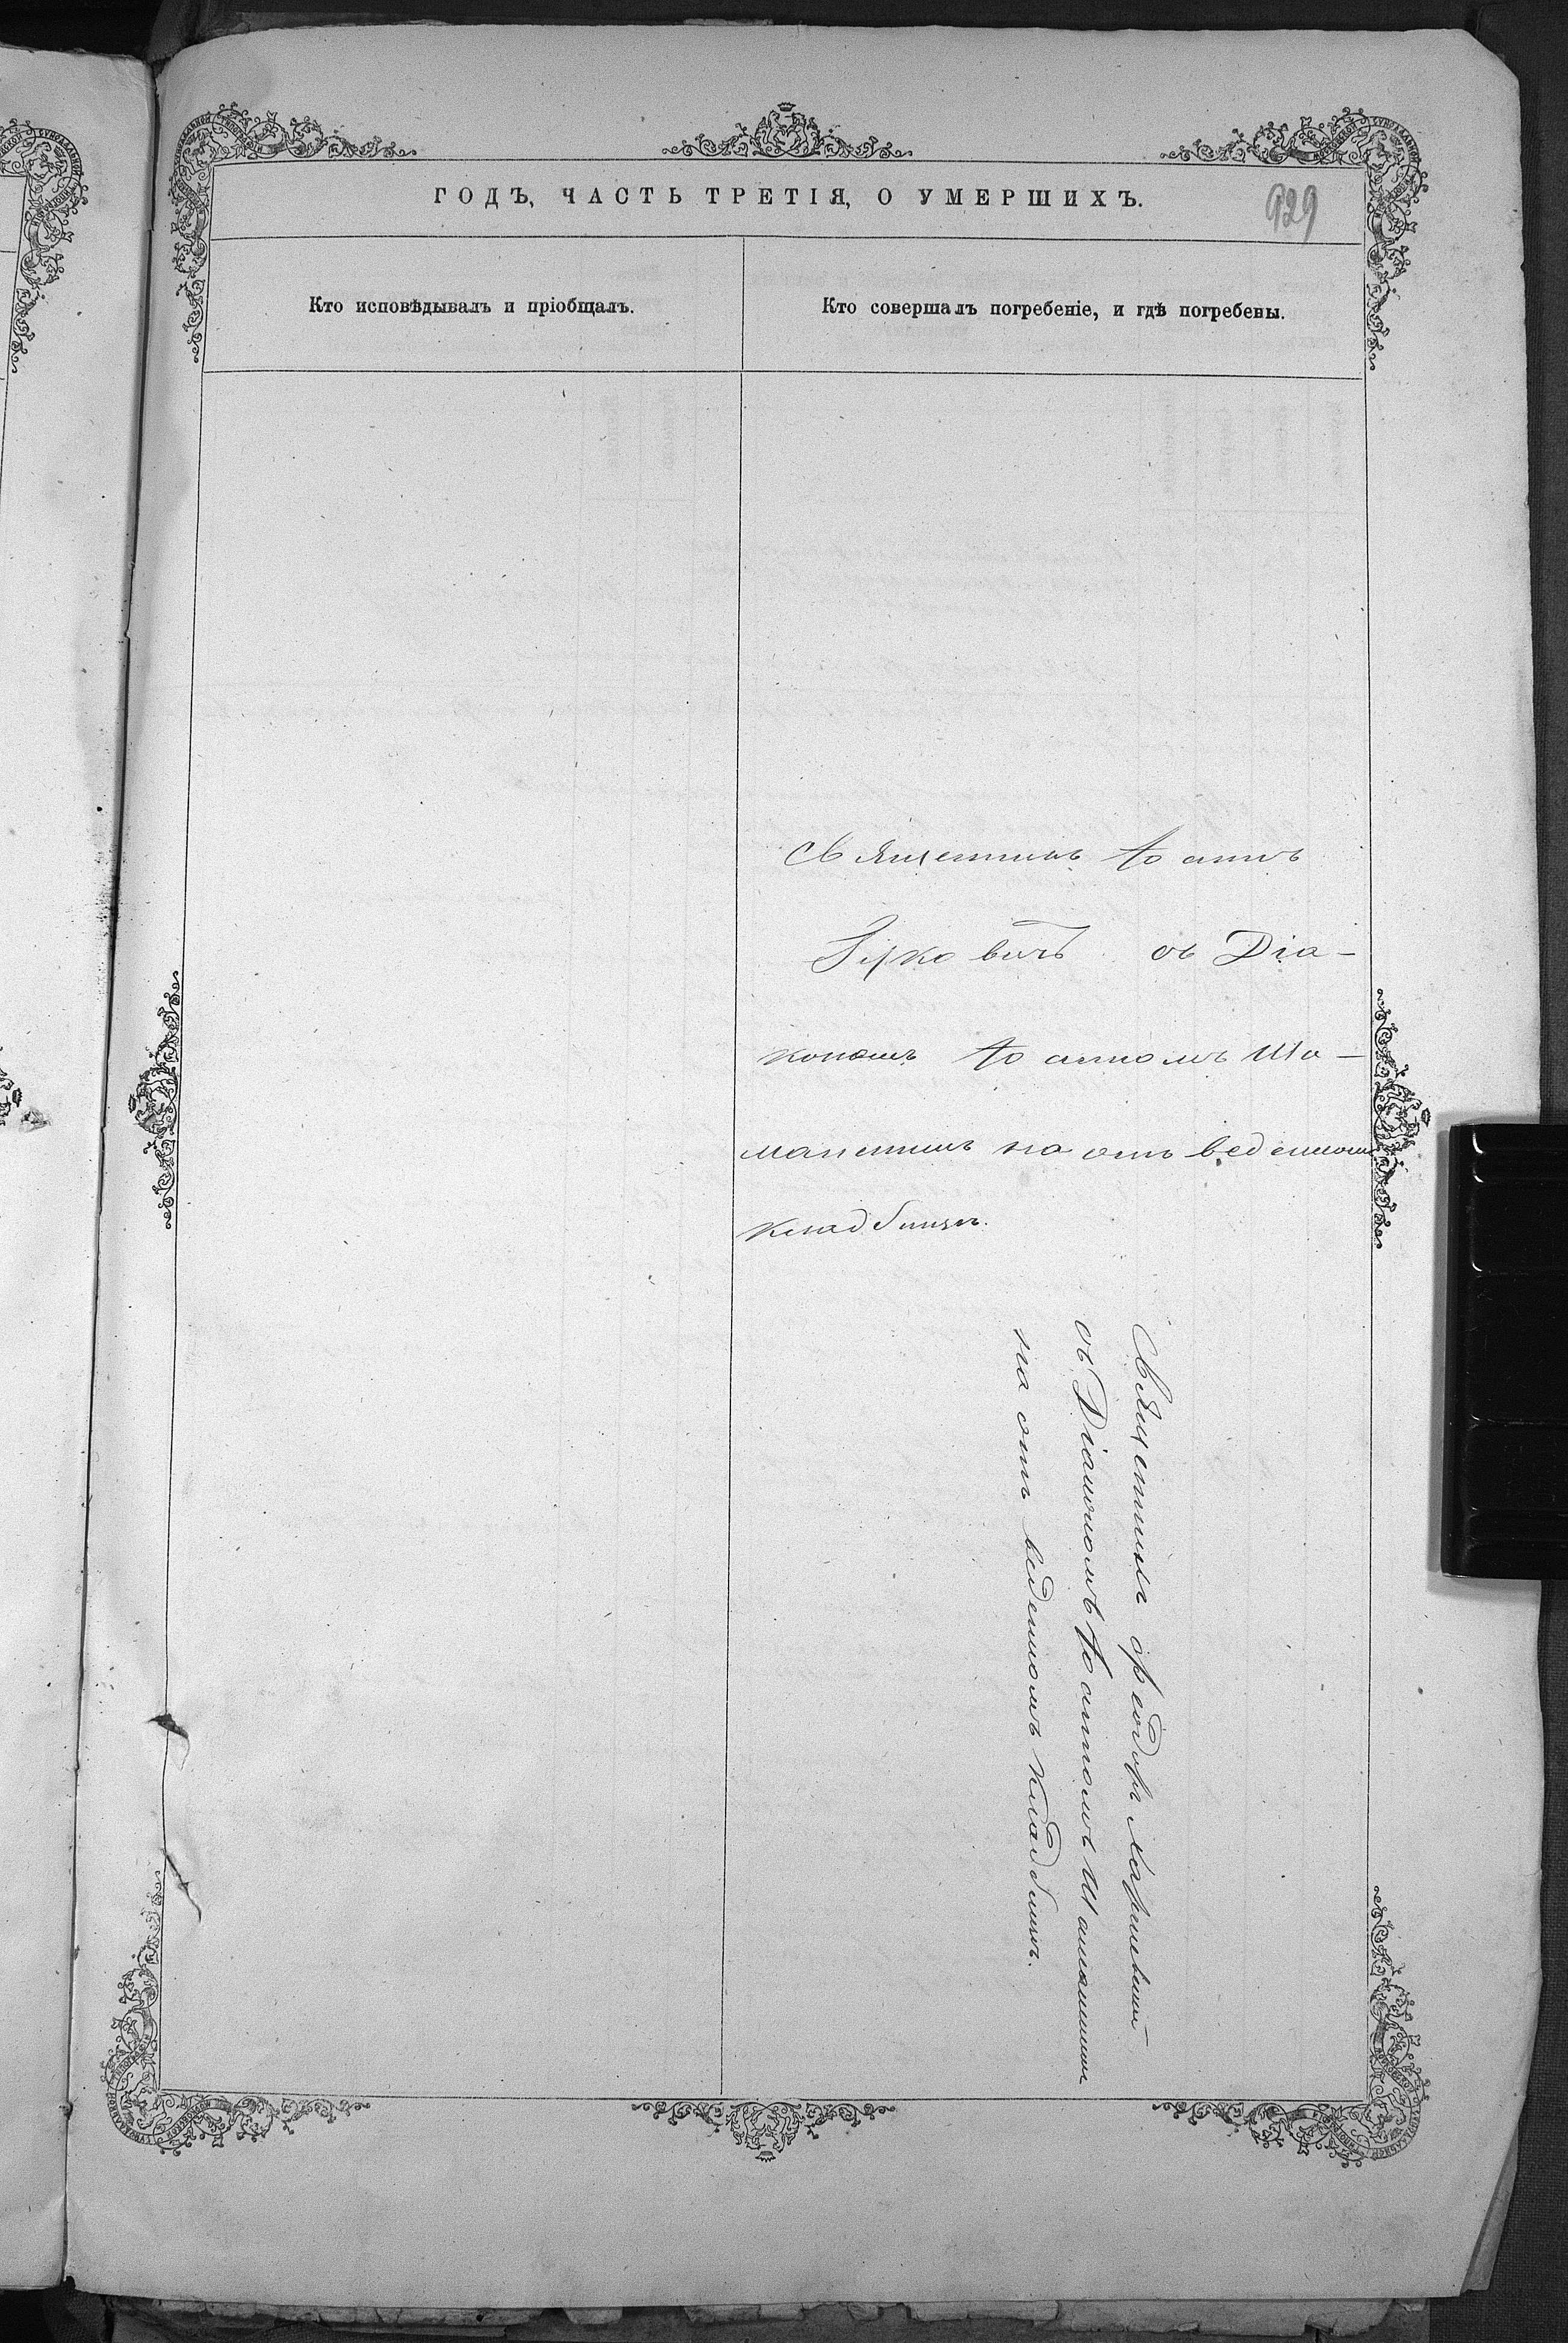 ГОДЪ, ЧАСТЬ ТРЕТІЯ, О УМЕРШИХЪ.
929
Кто исповѣдывалъ и пріобщалъ.
Кто совершалъ погребеніе, и гдѣ погребены.
Священникъ Іоаннъ
съ Діа-
кономъ Іоанномъ Ша-
на отведенномъ
кладбищѣ.
Священникъ Феодоръ
съ Діакономъ Іоанномъ
на отведенномъ кладбищѣ.